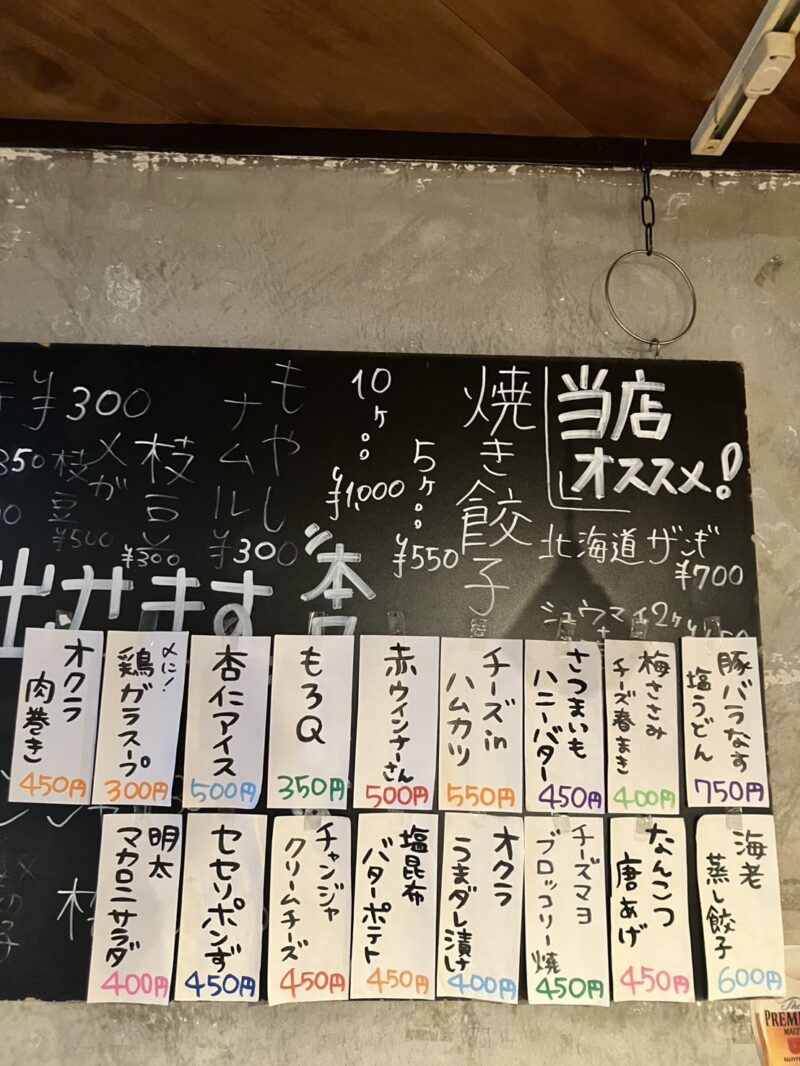 当店
オススメ!
北海道ザンギ
¥700
シュウマイ2ケ
焼き餃子
5ケ。。
¥550
10ケ。。
¥1,000
もやし
ナムル
¥300
枝豆
¥300
メガ
枝豆
¥500
¥300
350
本日
出せます
豚バラなす
塩うどん
750円
梅ささみ
チーズ春まき
400円
さつまいも
ハニーバター
450円
チーズin
ハムカツ
550円
赤ウインナーさん
500円
もろQ
350円
杏仁アイス
500円
〆に!
鶏ガラスープ
300円
オクラ
肉巻き
450円
海老
蒸し餃子
600円
なんこつ
唐あげ
450円
チーズマヨ
ブロッコリー焼
450円
オクラ
うまダレ漬け
400円
塩昆布
バターポテト
450円
チャンジャ
クリームチーズ
450円
セセリポンず
450円
明太
マカロニサラダ
400円
The
PREMI
MALT
SUNTO